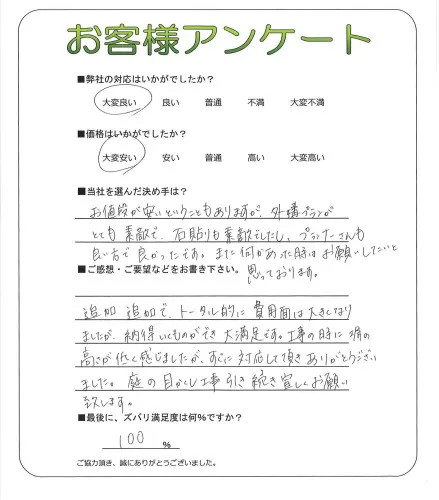 お客様アンケート
■弊社の対応はいかがでしたか?
大変良い 良い 普通 不満 大変不満
■価格はいかがでしたか?
大変安い 安い 普通 高い 大変高い
■当社を選んだ決め手は?
お値段が安いということもありますが、外構プランが
とても素敵で、石貼りも素敵でしたし、プランナーさんも
良い方で良かったです。また何かあった時はお願いしたいと
思っております。
■ご感想・ご要望などをお書き下さい。
追加追加で、トータル的に費用面は大きくなり
ましたが、納得いくものができ大満足です。工事の時に塀の
高さが低く感じましたが、すぐに対応して頂きありがとうござい
ました。庭の目かくし工事引き続き宜しくお願い
致します。
■最後に、ズバリ満足度は何%ですか?
100 %
ご協力頂き、誠にありがとうございました。